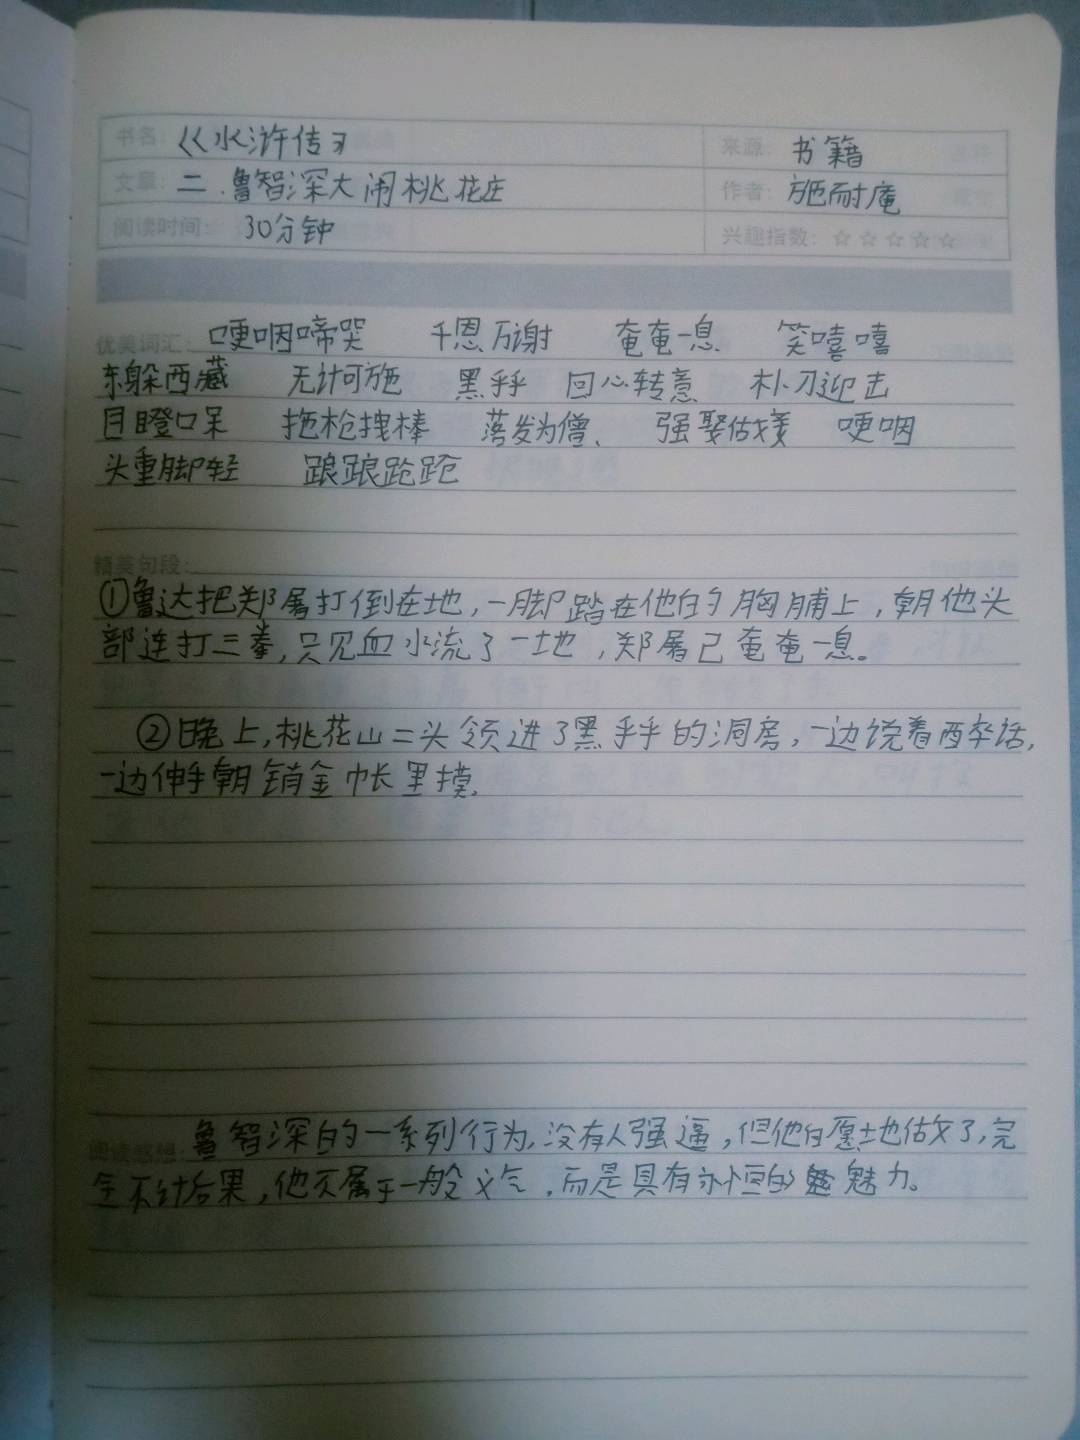 书名: 《水浒传》 来源: 书籍
文章: 二.鲁智深大闹桃花庄 作者: 施耐庵
阅读时间: 30分钟 兴趣指数: ☆☆☆☆☆
优美词汇: 哽咽啼哭 千恩万谢 奄奄一息 笑嘻嘻
东躲西藏 无计可施 黑乎乎 回心转意 朴刀迎击
目瞪口呆 拖枪拽棒 落发为僧、 强娶做妾 哽咽
头重脚轻 踉踉跄跄
精美句段:
①鲁达把郑屠打倒在地,一脚踏在他的胸脯上,朝他头
部连打三拳,只见血水流了一地,郑屠已奄奄一息。
②晚上,桃花山二头领进了黑乎乎的洞房,一边说着西卒话,
一边伸手朝销金帐里摸.
阅读感想: 鲁智深的一系列行为,没有人强逼,但他自愿地做了,完
全不计后果,他不属于一般义气.而是具有永恒的魅力。